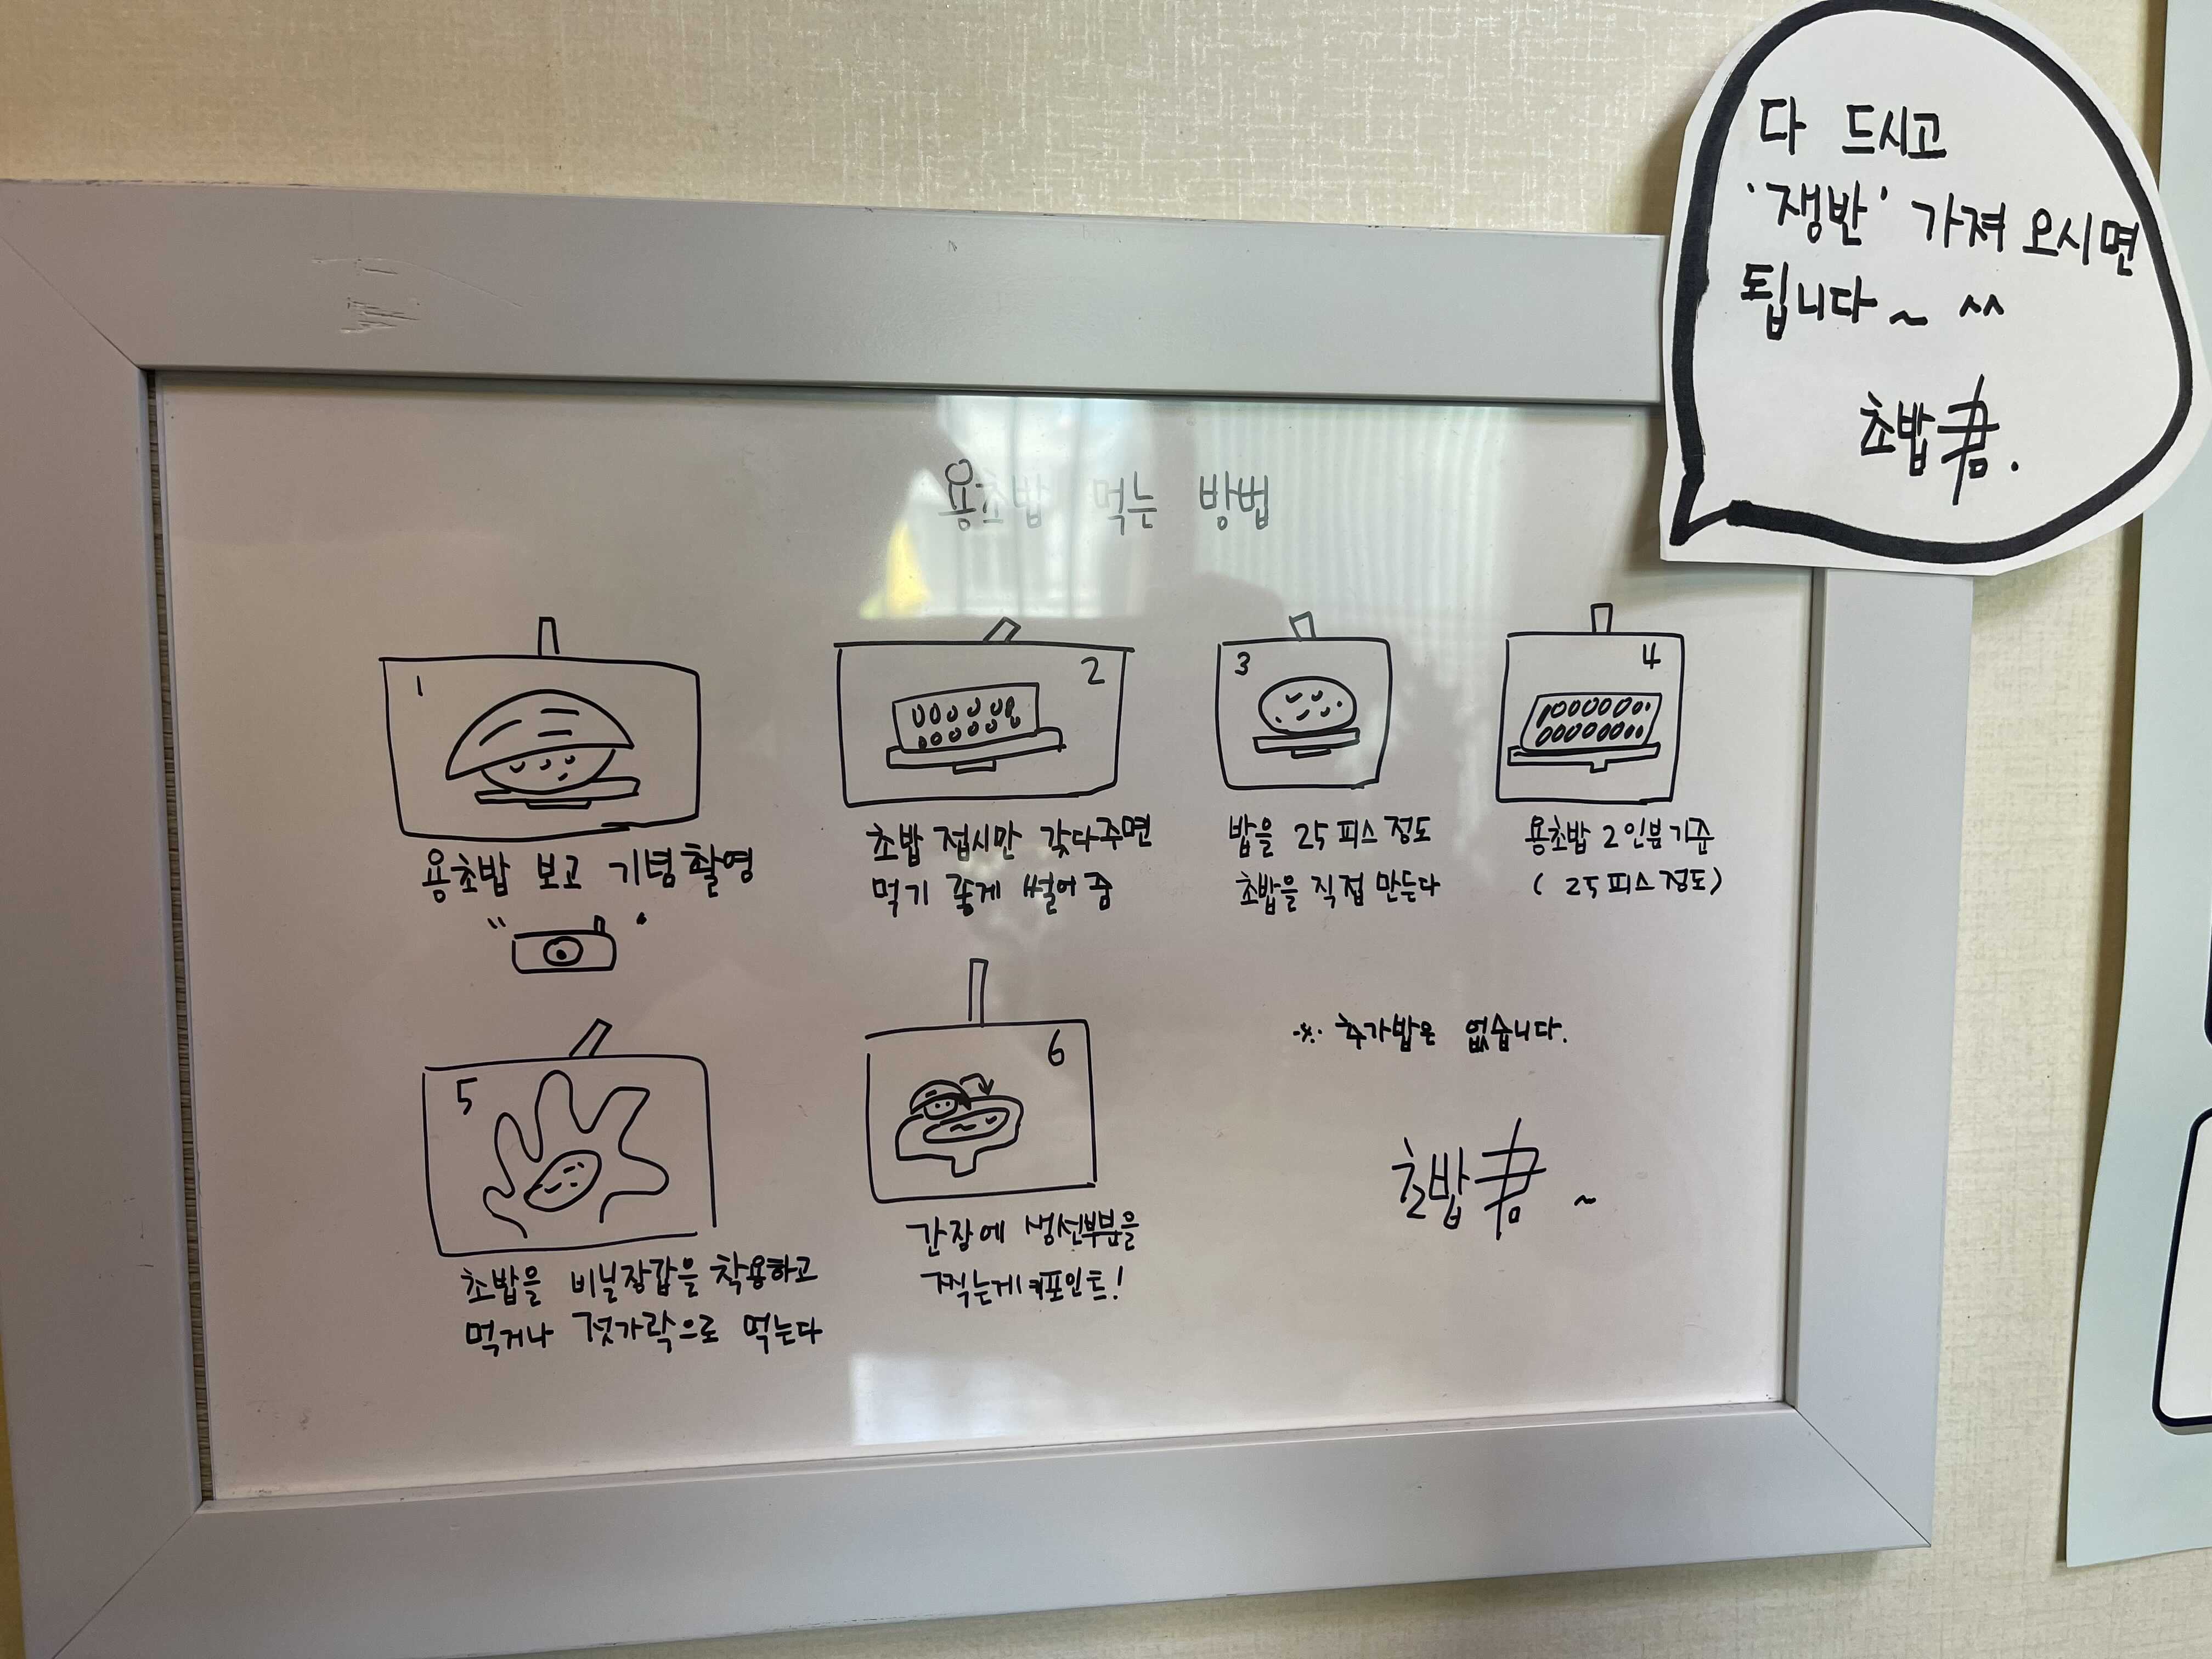 다 드시고
'쟁반' 가져 오시면
됩니다~ ^^
초밥콤.
용초밥 먹는 방법
1
용초밥 보고 기념촬영
2
초밥 접시만 갖다주면
먹기 좋게 썰어줌
3
밥을 25피스 정도
초밥을 직접 만든다
4
용초밥 2인분기준
(25피스정도)
5
초밥을 비닐장갑을 착용하고
먹거나 젓가락으로 먹는다
6
간장에 생선부분을
찍는게 키포인트!
※ 추가밥은 없습니다.
초밥콤~